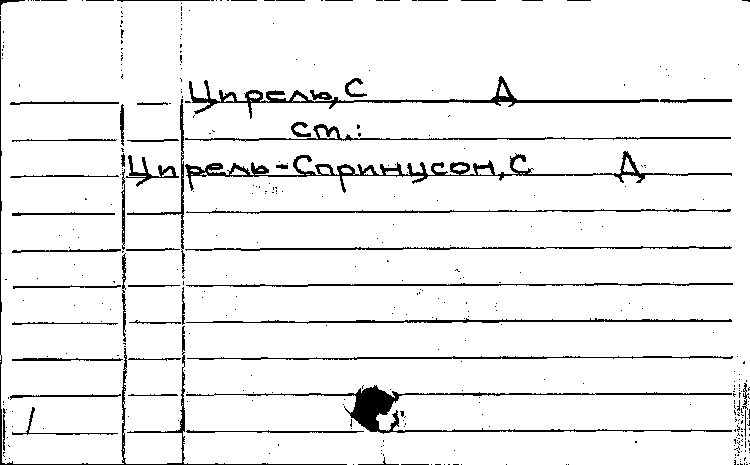 Цирель, С Д
см.:
Цирель-Спринцсон, С Д
/